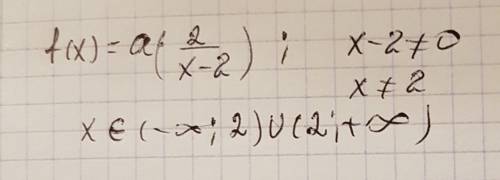 f(x) = a(2/(x-2)) ; x-2≠0
x≠2
x∈(-∞; 2)∪(2;+∞)